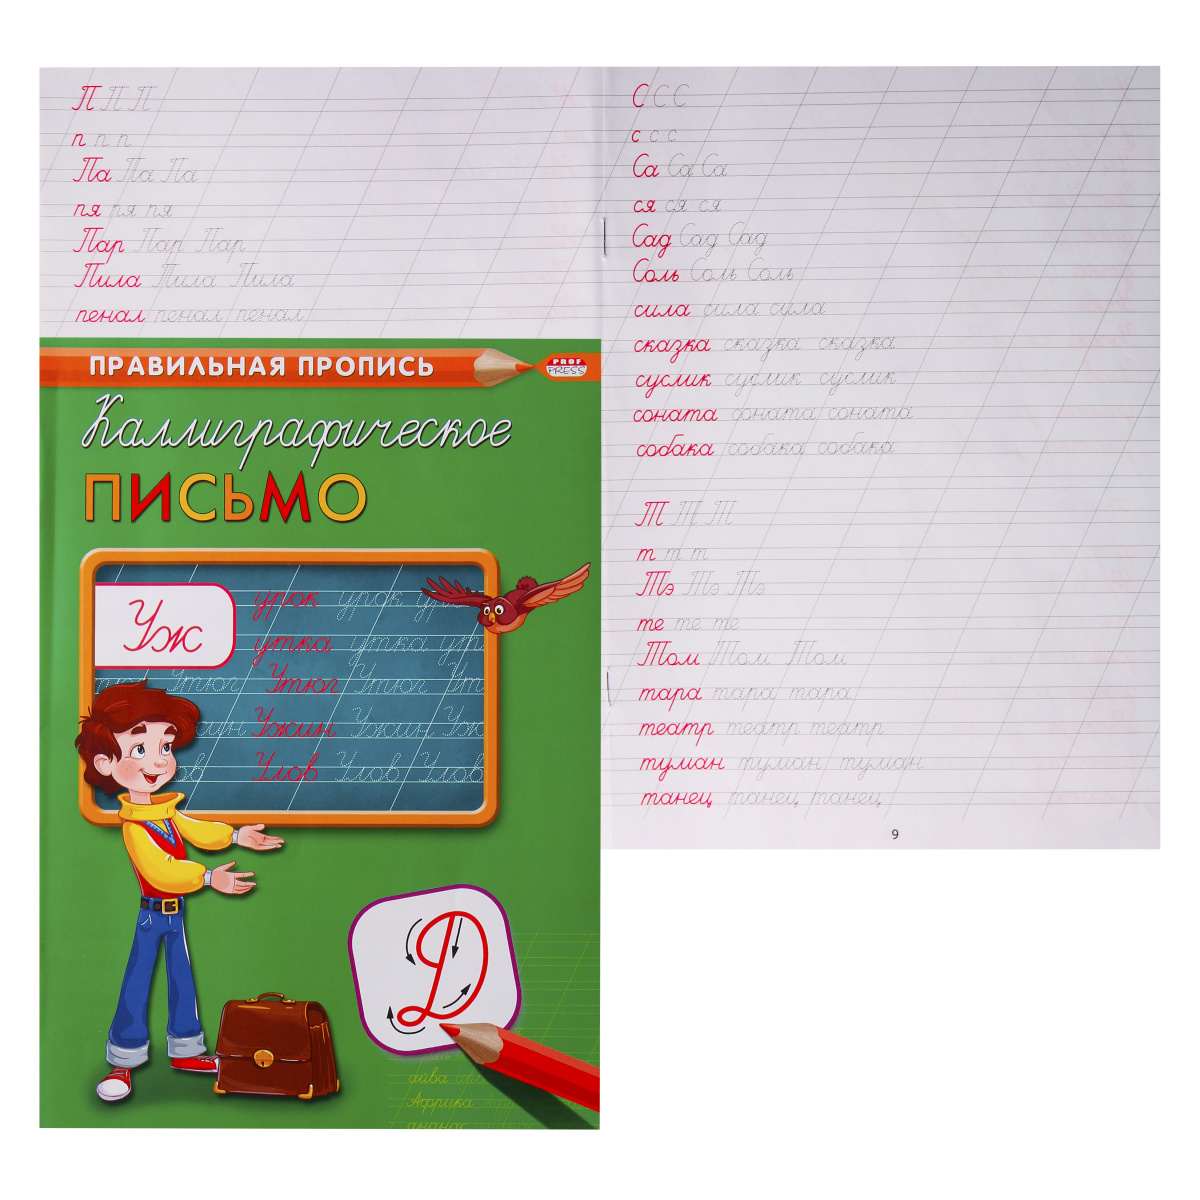 П П П
п п п
Па Па Па
пя пя пя
Пар Пар Пар
Пила Пила Пила
пенал пенал пенал
С С С
с с с
Са Са Са
ся ся ся
Сад Сад Сад
Соль Соль Соль
сила сила сила
сказка сказка сказка
суслик суслик суслик
соната соната соната
собака собака собака
Т Т Т
т т т
Тэ Тэ Тэ
те те те
Том Том Том
тара тара тара
театр театр театр
туман туман туман
танец танец танец
9
ПРАВИЛЬНАЯ ПРОПИСЬ
PROF
PRESS
Каллиграфическое
ПИСЬМО
Уж
урок урок
утка утка
Утюг Утюг Утюг
Ужин Ужин
Улов Улов Улов
Д
айва
Африка
ананас